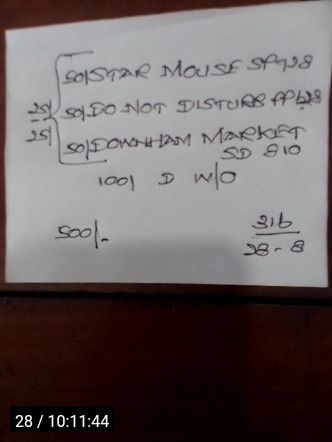 50/STAR MOUSE SP728
25/ 50/DO NOT DISTURB PP628
25/ 50/DOWNHAM MARKET
SD 810
100/ D W/O
500/-
316
28-8
28 / 10:11:44